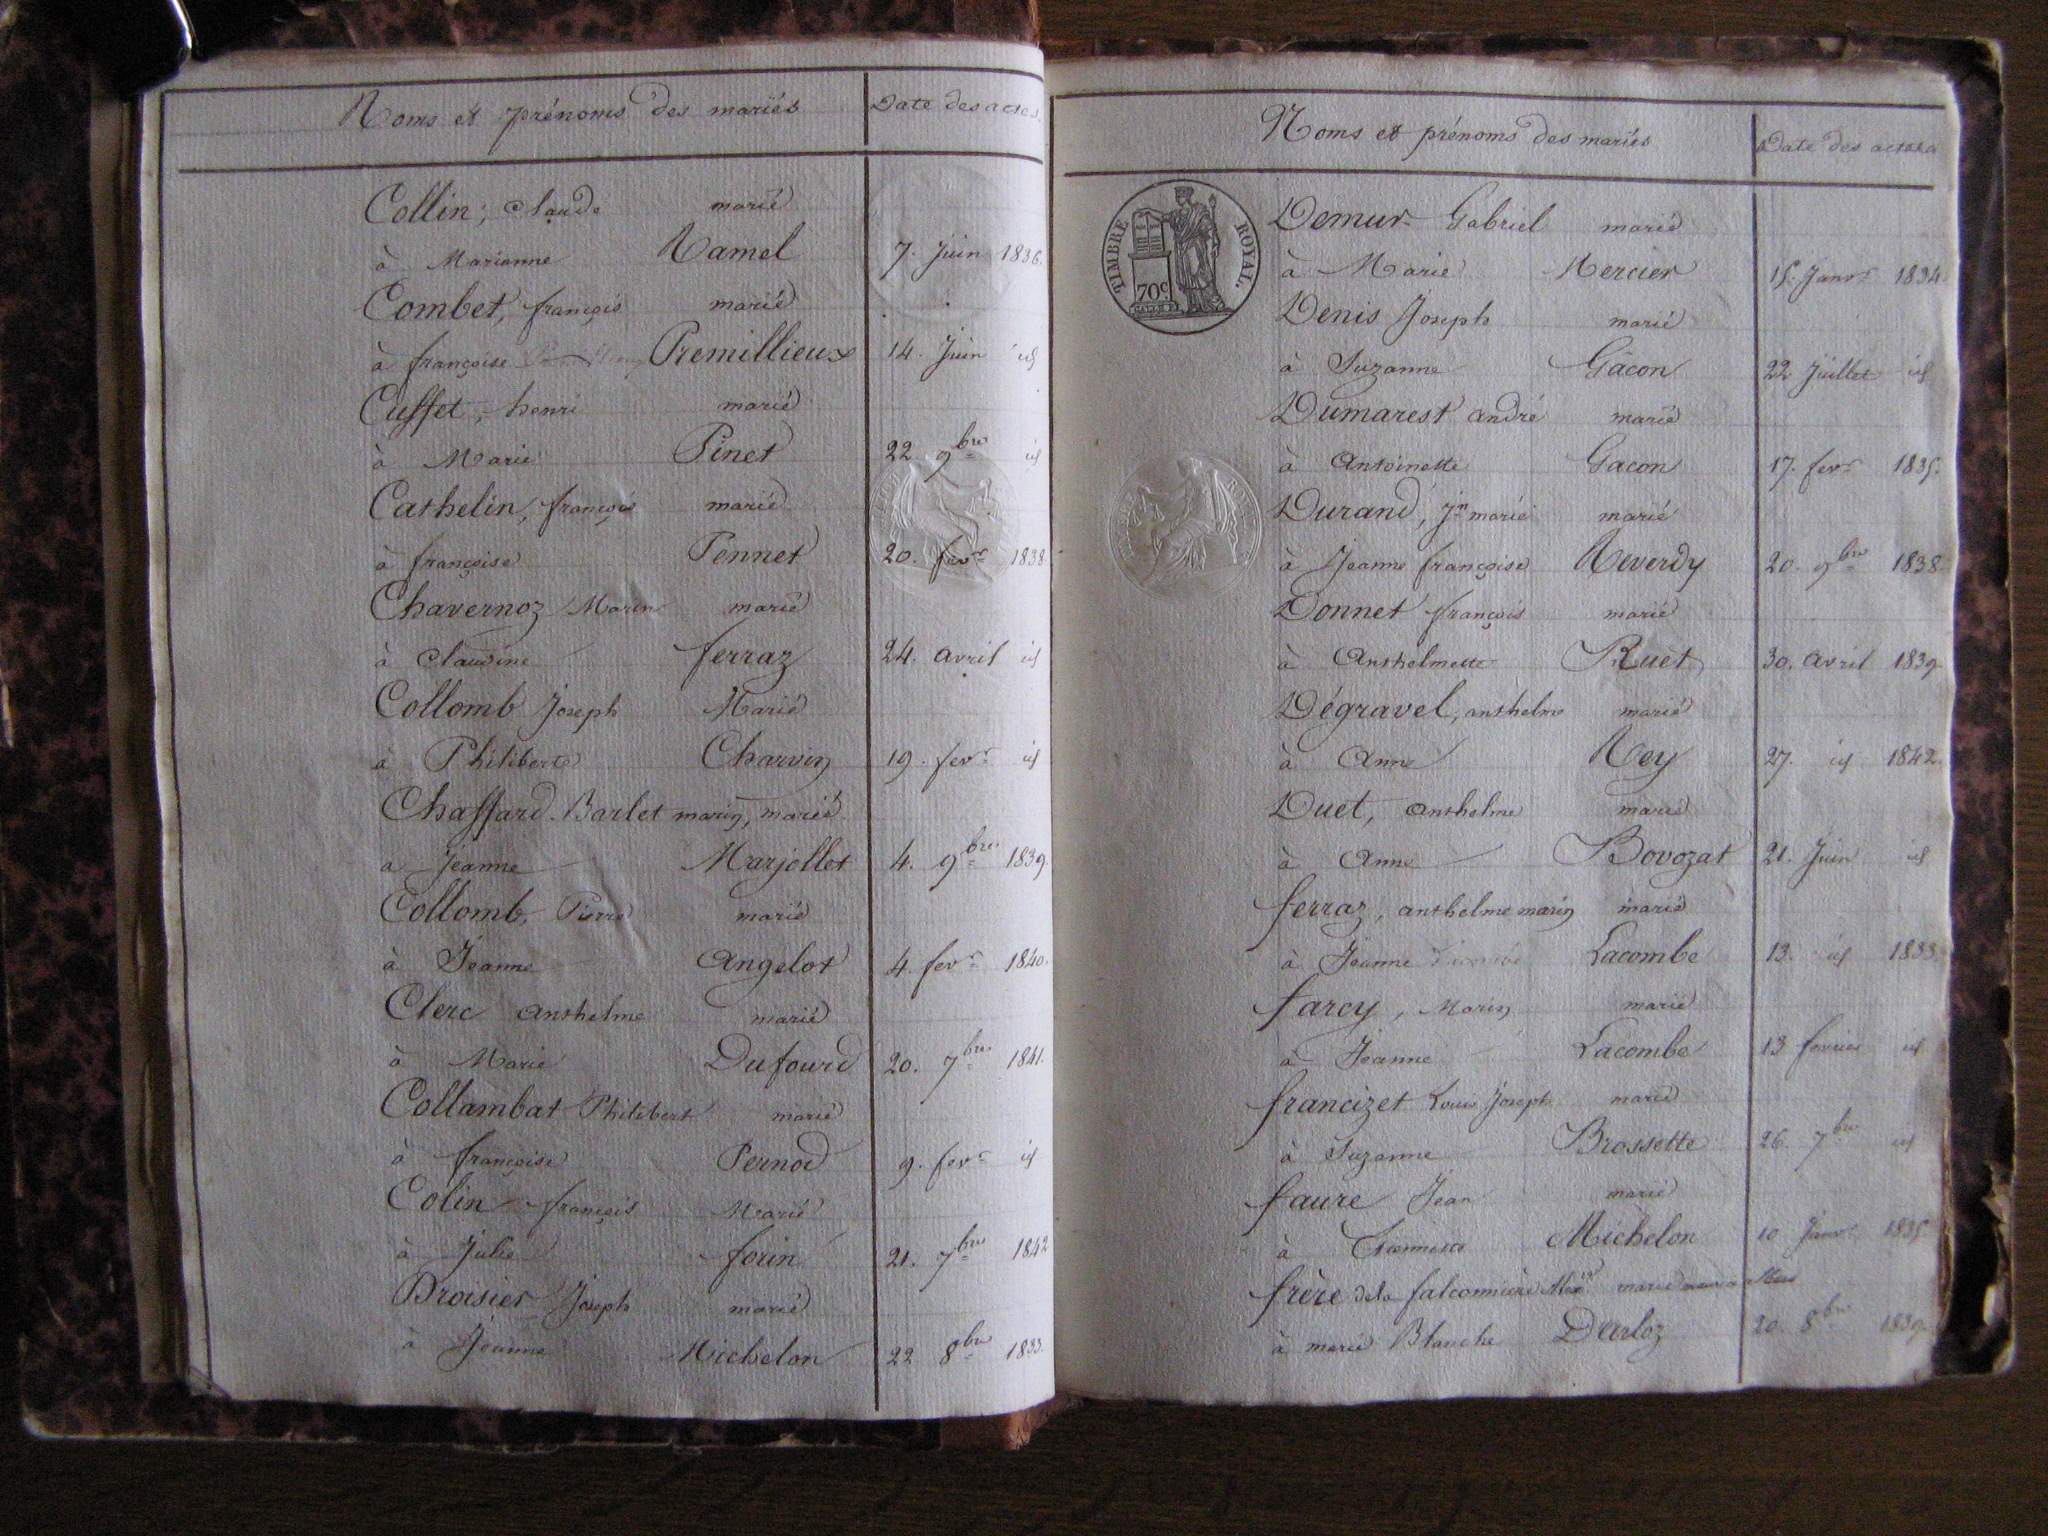 Noms et prénoms des mariés Date des actes.
Collin, Claude marié
à Marianne Ramel 7. Juin 1836.
Combet, françois marié
à françoise Premillieux 14. Juin id
Cuffet, henri marié
à Marie Pinet 22 9bre id
Cathelin, françois marié
à françoise Pennet 20. fevr 1838.
Chavernoz Marin marié
à Claudine ferraz 24. avril id
Collomb Joseph Marié
à Philiberte Charvin 19. fevr id
Chaffard-Barlet marin, marié
a Jeanne Marjollet 4. 9bre 1839.
Collomb, Pierre marié
à Jeanne Angelot 4. fevr 1840.
Clerc anthelme marié
à Marie Dufourd 20. 7bre 1841.
Collambat Philibert marié
à françoise Pernod 9. fevr id
Colin françois Marié
à Julie forin 21. 7bre 1842
Broisier Joseph marié
à Jeanne Michelon 22 8bre 1833.
Noms et prénoms des mariés Date des actes
TIMBRE ROYAL.
70c
Demur Gabriel marié
à Marie Mercier 15. Janvr 1834.
Denis Joseph marié
à Suzanne Gâcon 22 Juillet id
Dumarest andré marié
à Antoinette Gacon 17. fevr 1835.
Durand, Jn marie marié
à Jeanne françoise Reverdy 20. 9bre 1838.
Donnet françois marié
à Anthelmette Ruet 30. avril 1839.
Dégravel, anthelme marié
à Anne Rey 27. id 1842.
Duet, anthelme marié
à Anne Bovozat 21. Juin id
ferraz, anthelme marin marié
à Jeanne Lacombe 13. id 1833.
farcy, Marin marié
à Jeanne Lacombe 13 fevrier id
francizet Louis Joseph marié
à Suzanne Brossette 26. 7bre id
faure Jean marié
à Michelon 10 Janvr 1835.
frère de la falconnière marié
à marie Blanche Darloz 20. 8bre 1839.